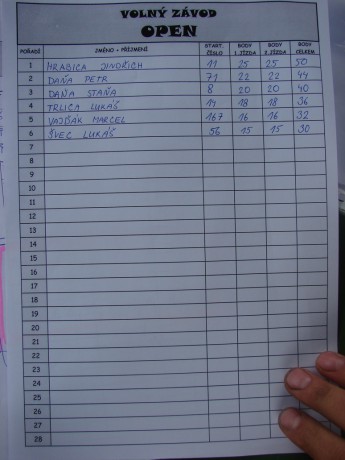 VOLNÝ ZÁVOD
OPEN
POŘADÍ JMÉNO + PŘÍJMENÍ START. ČÍSLO BODY 1 JÍZDA BODY 2 JÍZDA BODY CELKEM
1 HRABICA JINDŘICH 11 25 25 50
2 DAŇA PETR 71 22 22 44
3 DAŇA STAŇA 8 20 20 40
4 TRLICA LUKÁŠ 14 18 18 36
5 VAJĎÁK MARCEL 167 16 16 32
6 ŠVEC LUKÁŠ 56 15 15 30
7
8
9
10
11
12
13
14
15
16
17
18
19
20
21
22
23
24
25
26
27
28